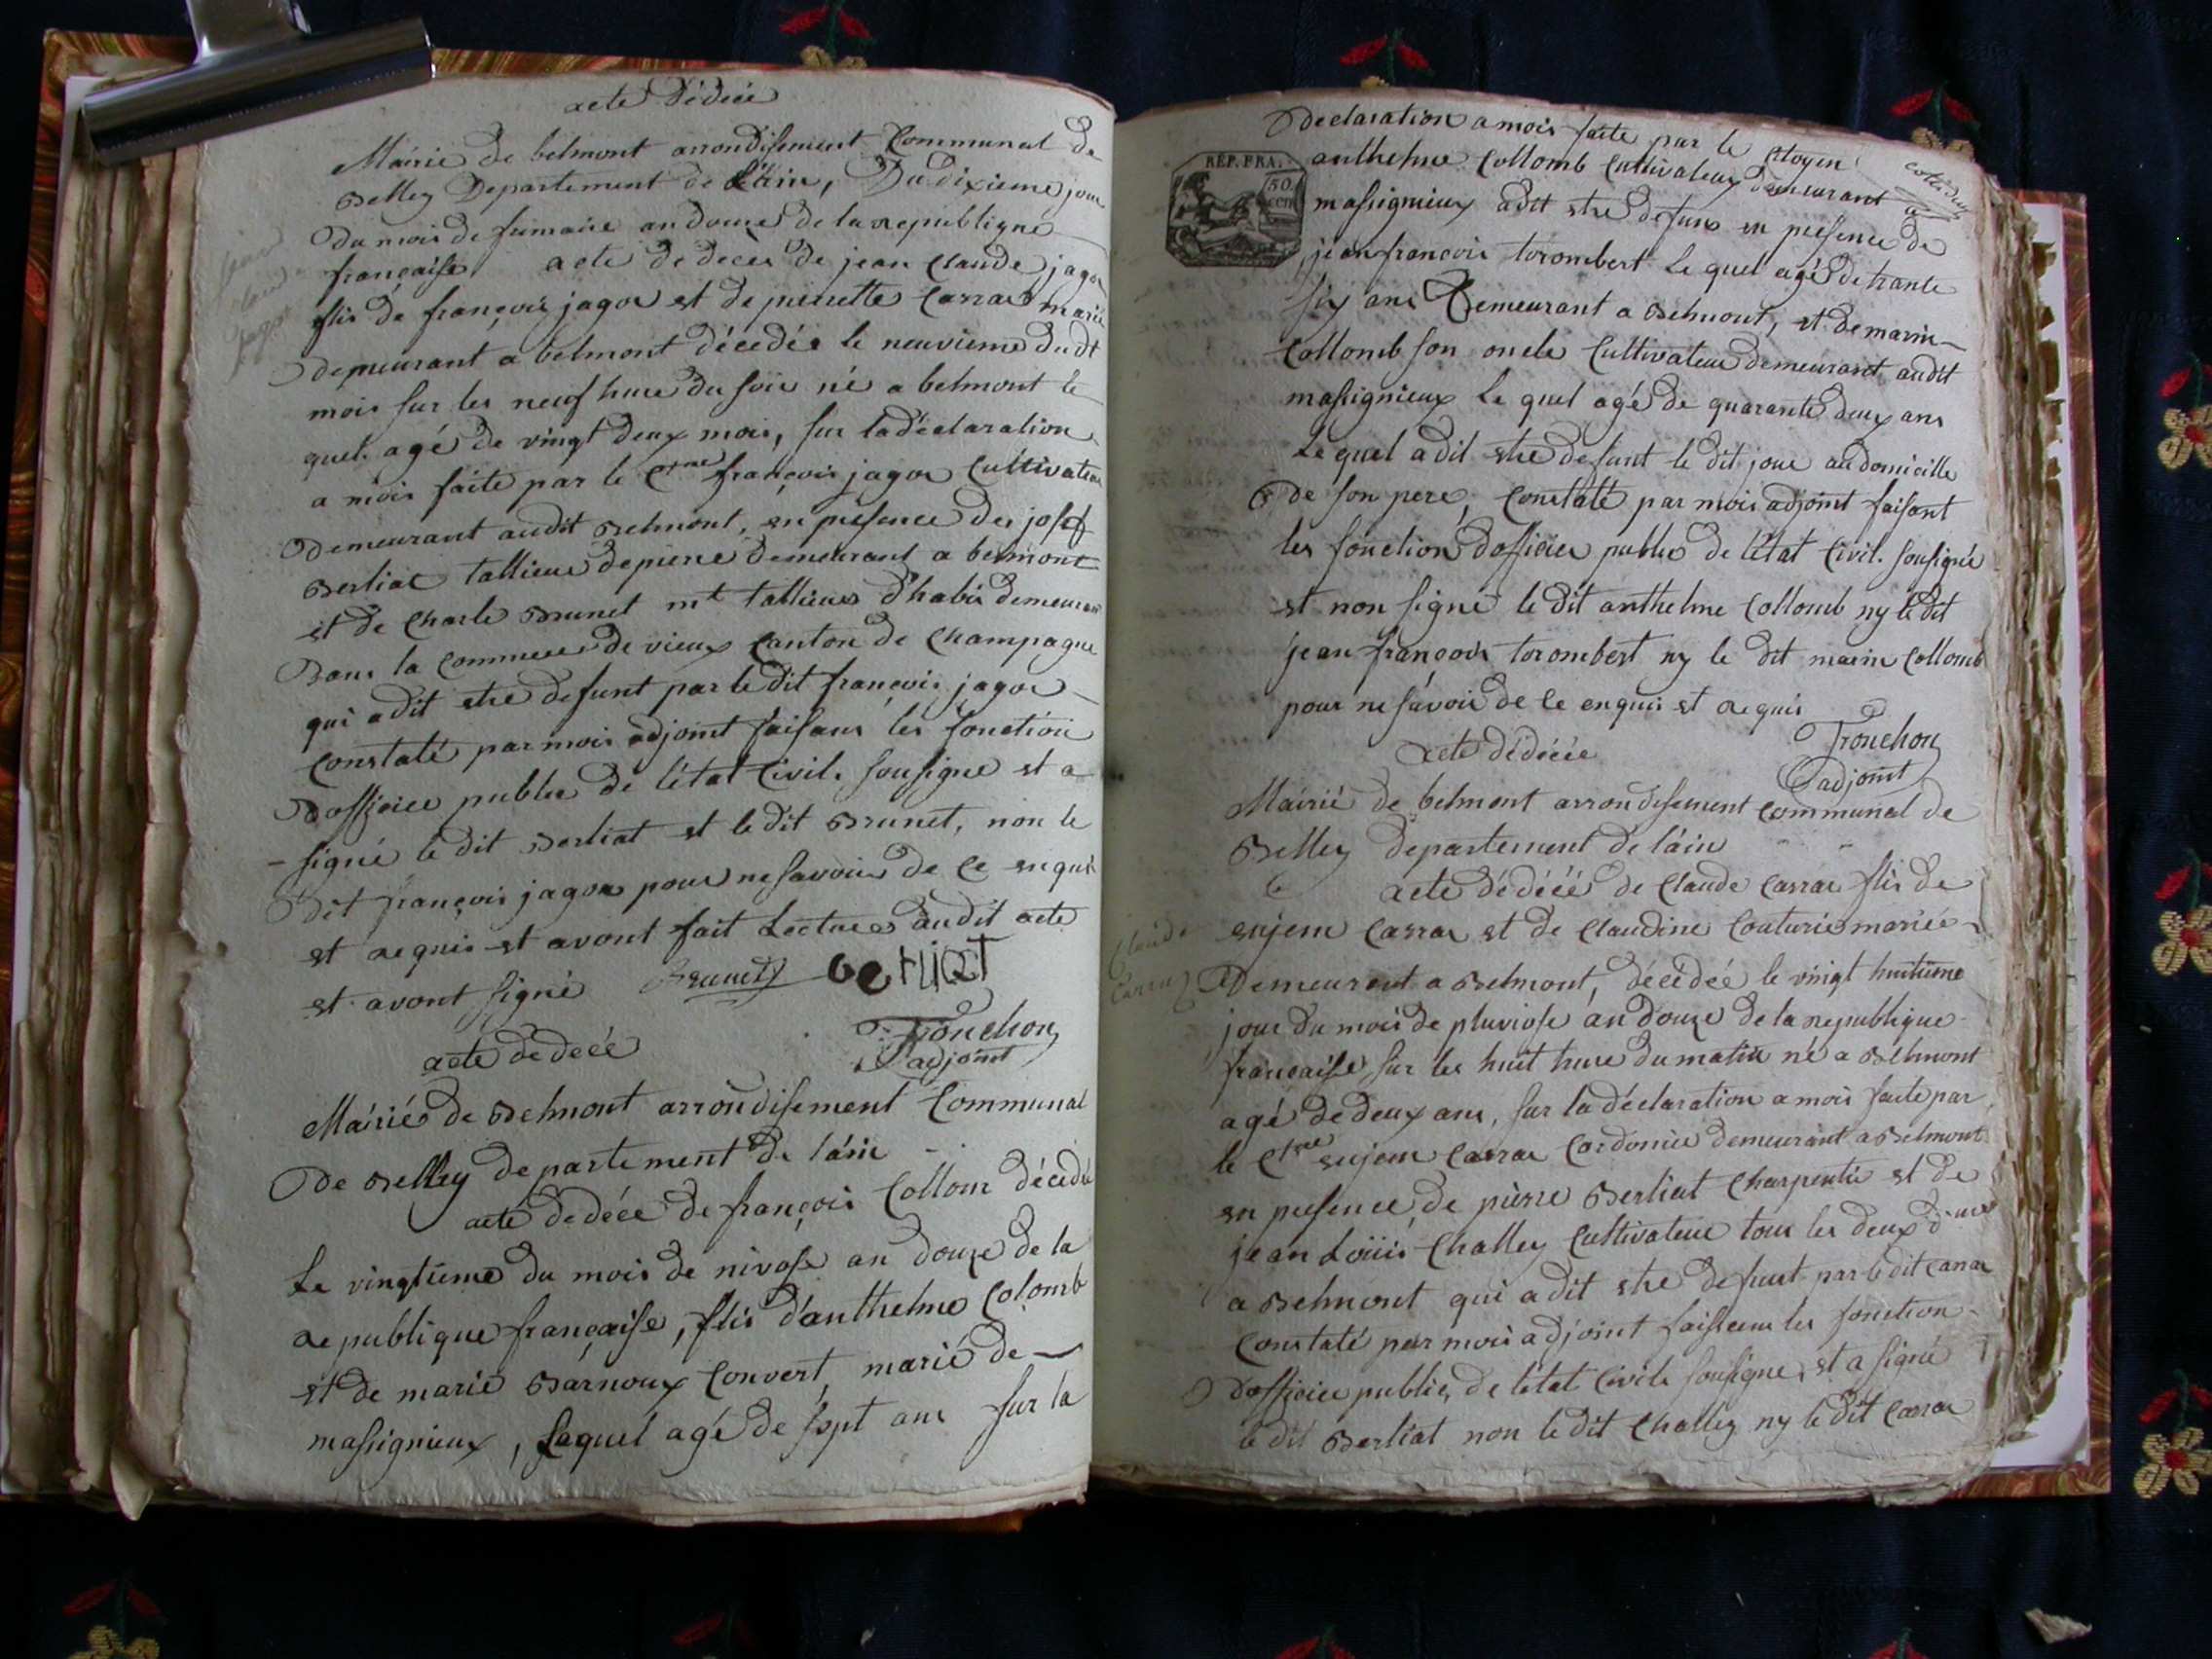 acte dédécé
Mairie de belmont arrondisement Communal de
Belley Departement de l'ain, Du dixieme jour
du mois de frimaire an douze de la republique
française acte de décès de jean Claude jagou
flis de françois jagou et de pierrette Carrar marié
demeurant a belmont décédée le neuvieme dudt
mois sur les neuf hure du soir né a belmont le
quel agé de vingt deux mois, sur la déclaration
a mois faite par le Cne françois jagou Cultivateur
demeurant audit Belmont, en présence des josef
Berliat tallieur de piere demeurant a belmont
et de Charle Brunet mt tallieur d'habis demeurant
Dans la Commune de vieux Canton de Champagne
qui a dit etre defunt par le dit françois jagou
Constaté par mois adjoint faisans les fonction
d'officier public de l'état Civil. sousigne et a
signé le dit Berliat et le dit Brunet, non le
Dit françois jagou pour ne savoir de Ce enquis
et requis et avont fait Lecture audit acte
et avont signé Brunet Berliat
Trouchon
adjoint
acte de décé
Jean
Claude
Jagou
Mairié de Belmont arrondisement Communal
De Belley departement de l'ain
acte dedécé de françois Collom décédé
Le vingtieme du mois de nivose an douze de la
republique française, flis d'anthelme Colomb
et de marie Barnoux Convert, marié de
massignieux, Laquel agé de sept ans sur la
Declaration a mois faite par le Citoyen
REP. FRA.
50
cen
anthelme Collomb Cultivateur demeurant a
massignieux adit etre defunt en présence de
jean françois torombert le quel agé de trante
six ans Demeurant a Belmont, et de marin
Collomb son oncle Cultivateur demeurant audit
massignieux le quel agé de quarante deux ans
Le quel a dit etre defunt le dit jour au domicille
De son pere, Constaté par mois adjoint faisant
les fonction d'officier public de l'état Civil. sousigné
et non signé le dit anthelme Collomb ny le dit
jean françois torombert ny le dit marin Collomb
pour ne savoir de Ce enquis et requis
Trouchon
adjoint
acte dédécée
Mairié de belmont arrondisement Communal de
Belley departement de l'ain
acte dédécé de Claude Carrar flis de
Claude
Carrar
eujene Carrar et de Claudine Couturie mariée
Demeurant a Belmont, décédée le vingt huitieme
jour du mois de pluviose an douze de la republique
française sur les huit hure du matin né a Belmont
agé de deux ans, sur la déclaration a mois faite par
le Cne eujene Carrar Cordonie demeurant a Belmont
en présence, de pierre Berliat Charpentie et de
jean Loüis Challey Cultivateur tous les deux
a Belmont qui a dit etre defunt par le dit Carrar
Constaté par mois adjoint faissans les fonction
D'officier public, de l'état Civil. sousigne, et a signé
le dit Berliat non le dit Challey ny le dit Carrar